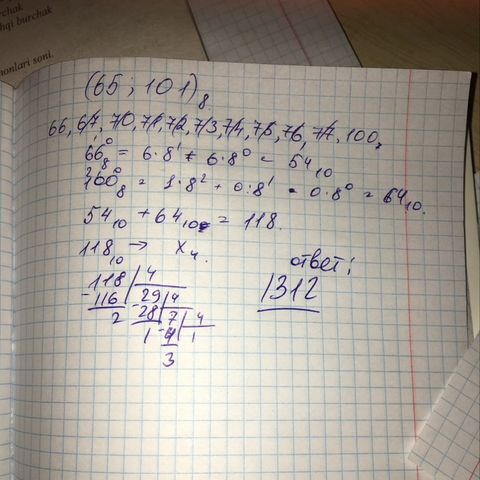 chak
hqi burchak
onlari soni,
(65 ; 101)₈
66, 67, 70, 71, 72, 73, 74, 75, 76, 77, 100,
66₈ = 6·8¹ + 6·8⁰ = 54₁₀
100₈ = 1·8² + 0·8¹ + 0·8⁰ = 64₁₀.
54₁₀ + 64₁₀ = 118.
118₁₀ → X₄.
ответ:
1312
118 4
- 116 29 4
2 - 28 7 4
1 - 4 1
3